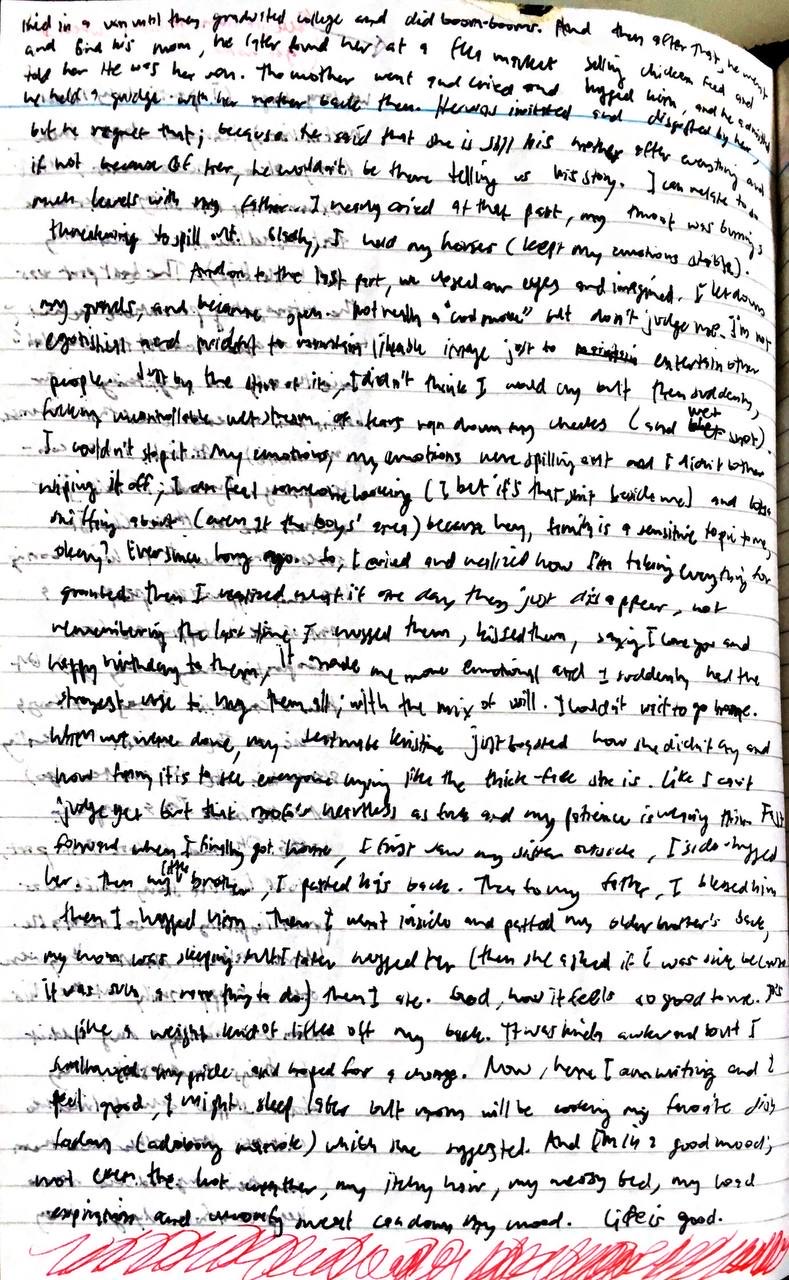 lived in a van until they graduated college and did boom-booms. And then after that, he went
and find his mom, he later found her at a flea market selling chicken feed and
told her He was her son. The mother went and cried and hugged him, and he admitted
he held a grudge with her mother back then. He was irritated and disgusted by her,
but he regret that; because he said that she is still his mother after everything and
if not because OF her, he wouldn't be there telling us his story. I can relate to so
much levels with my father. I nearly cried at that part, my throat was burning &
threatening to spill out. Gladly, I hold my horses (kept my emotions stable).
And on to the last part, we closed our eyes and imagined. I let down
my guards and became open. Not really a "cool move" but don't judge me. I'm not
egotistical and prideful to maintain likeable image just to entertain other
people. Just by the start of it, I didn't think I would cry but then suddenly,
fucking uncontrollable wet stream of tears ran down my cheeks (and wet snot).
I couldn't stop it. My emotions, my emotions were spilling out and I didn't bother
wiping it off; I can feel someone looking (I bet it's that shit beside me) and
sniffing about (even at the boys' area) because hey, family is a sensitive topic to me,
okay? Ever since long ago. So, I cried and realized how I'm taking everything for
granted. Then I realized what if one day they just disappear, not
remembering the last time I hugged them, kissed them, saying I love you and
happy birthday to them, It made me more emotional and I suddenly had the
strongest urge to hug them all; with the mix of will. I couldn't wait to go home.
When we were done, my seatmate Kristine just boasted how she didn't cry and
how funny it is to see everyone crying like the thick-face she is. Like I can't
judge yet but that is heartless as fuck and my patience is wearing thin. Fast
forward when I finally got home, I first saw my sister outside, I side-hugged
her. Then my little brother, I patted his back. Then to my father, I blessed him
then I hugged him. Then I went inside and patted my older brother's back,
my mom was sleeping but I later hugged her (then she asked if I was sick because
it was such a rare thing to do) Then I ate. God, how it feels so good to me. It's
like a weight kind of lifted off my back. It was kinda awkward but I
swallowed my pride and hoped for a change. Now, here I am writing and I
feel good, I might sleep later but mom will be cooking my favorite dish
today (adobong manok) which she suggested. And I'm in a good mood;
not even the hot weather, my itchy hair, my messy bed, my load
and sweat can down my mood. Life is good.